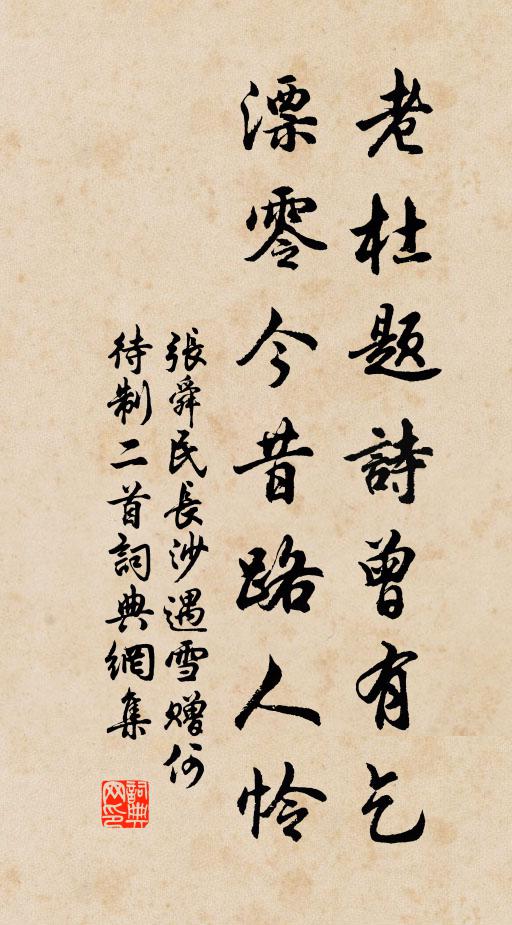 老杜題詩曾有乞
漂零今昔路人憐
張舜民長沙遇雪贈何
待制二首詞典網集
詞典
网印